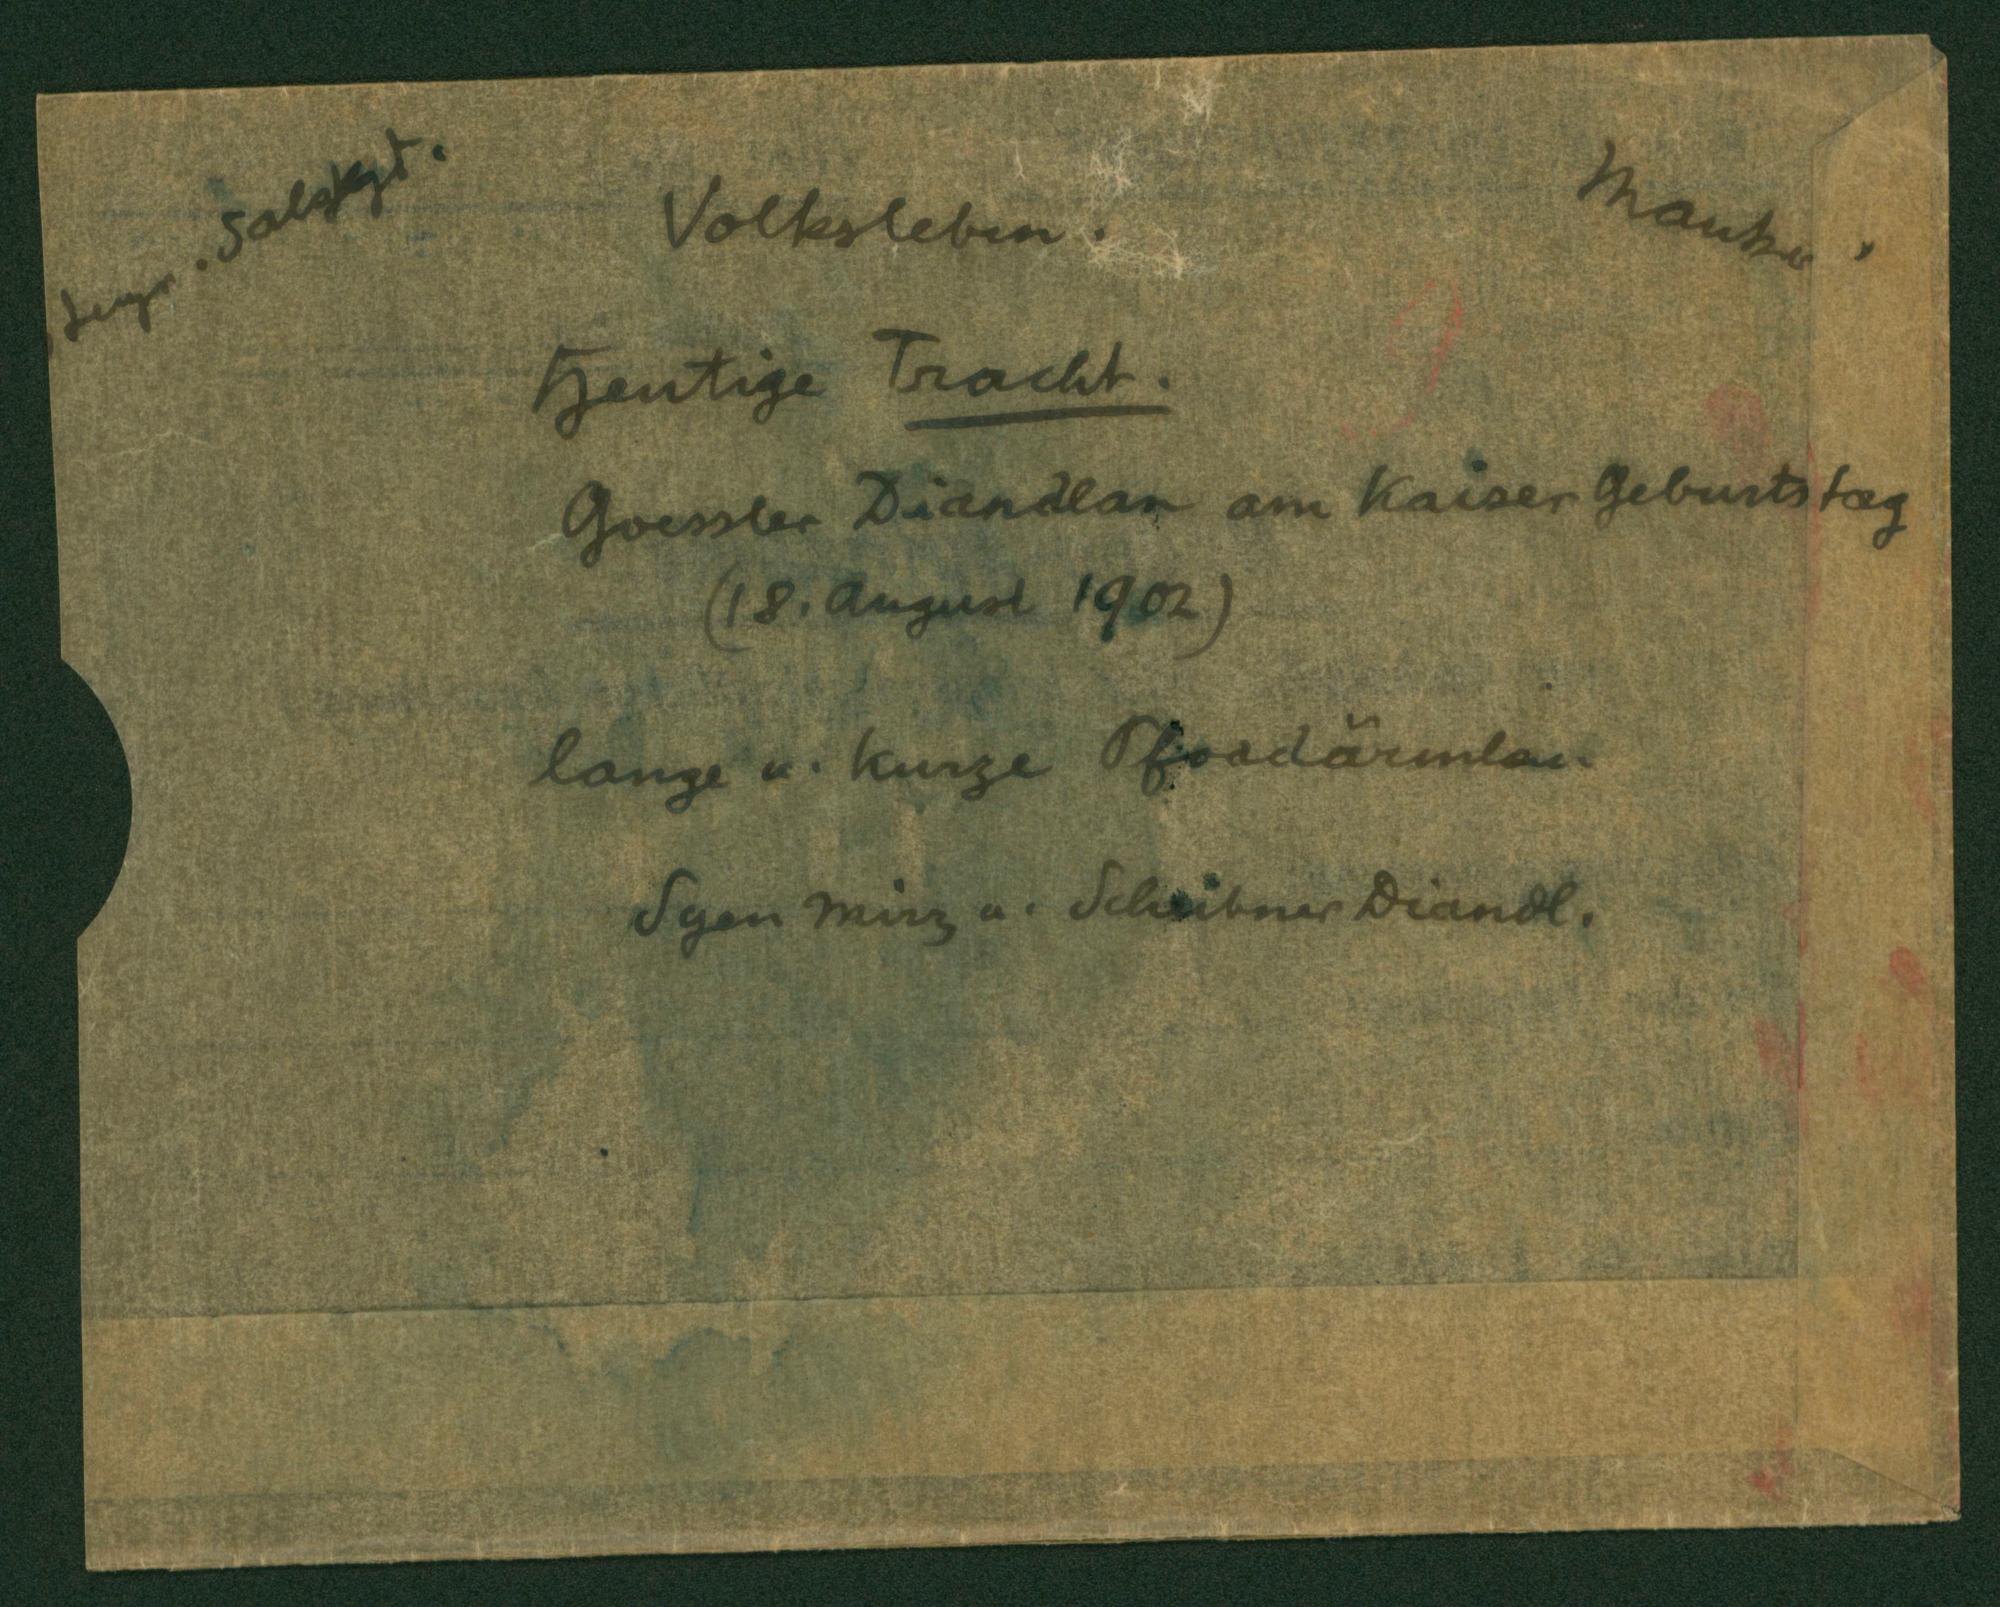 Salzkgt.
Volksleben.
Heutige Tracht.
Goessler Diandlan am Kaiser Geburtstag
(18. August 1902)
lange u. kurze Pfoadärmlan.
u. Scheibner Diandl.